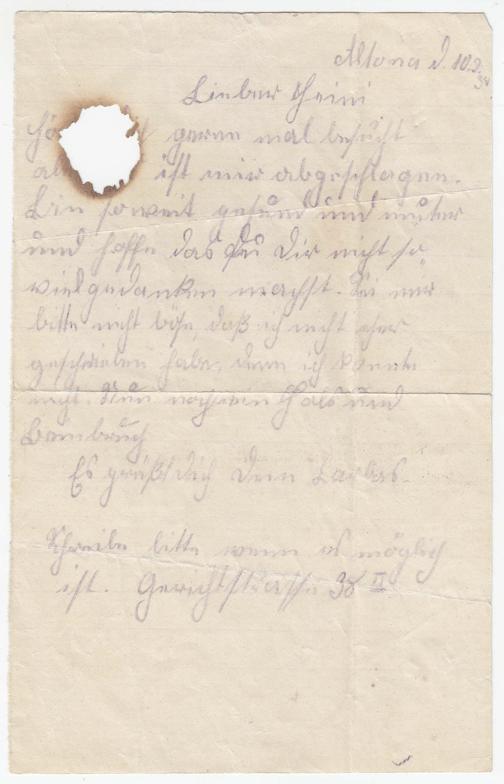 Altona d. 10.2.34
Lieber Heini
gerne mal besucht
ist mir abgeschlagen.
Bin soweit gesund und munter
und hoffe das Du Dir nicht so
viel gedanken machst. Sei mir
bitte nicht böse, daß ich nicht eher
geschrieben habe, denn ich konnte
nicht. Nun noch ein Hals und
Beinbruch
Es grüßt dich Dein
Schreibe bitte wenn es möglich
ist. Gerichtstrasse 38 II